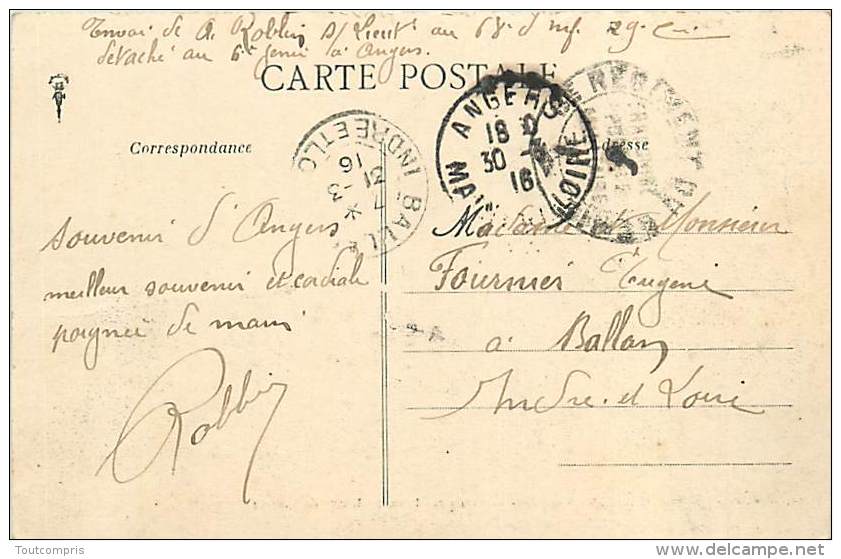 Envoi de A. Robbin s/Lieut au 68e d'inf. 29e Cie
détaché au 6e génie à Angers.
CARTE POSTALE
Correspondance
Adresse
ANGERS
18
30 -
16
MAINE LOIRE
REGIMENT D'
BALLAN INDRE ET LOIRE
7 *
31 -3
16
Souvenir d'Angers
meilleur souvenir et cordiale
poignée de main
Robbin
Madame et Monsieur
Fournier Eugène
à Ballan
Indre-et-Loire
Toutcompris
www.delcampe.net